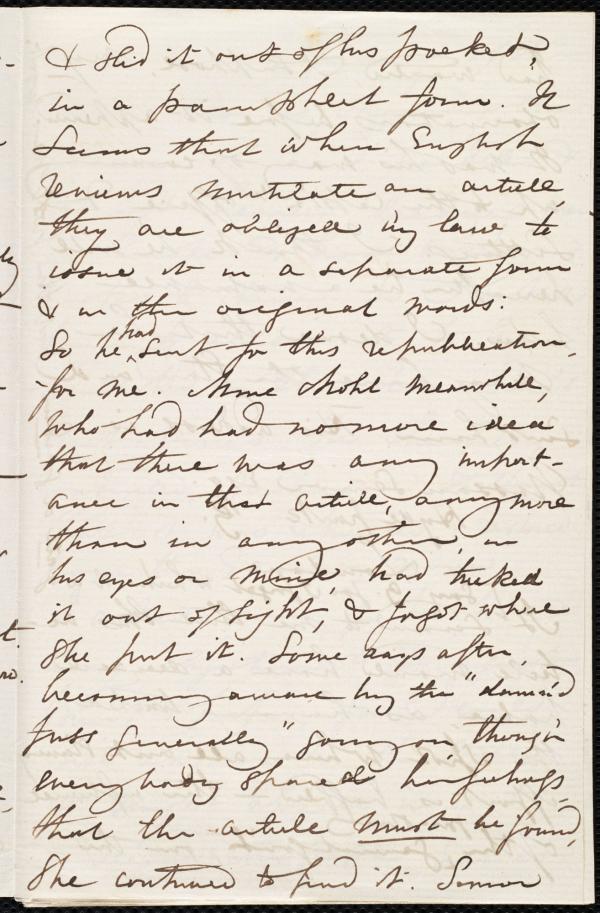 & slid it out of his pocket,
in a pamphlet form. It
seems that when English
reviews mutilate an article,
they are obliged by law to
issue it in a separate form
& in the original words:
So he had sent for this republication,
for me. Mme Mohl meanwhile,
who had had no more idea
that there was any import-
ance in that article, any more
than in any other, in
his eyes or mine, had tucked
it out of sight, & forgot where
she put it. Some days after,
becoming aware by the "damn'd
fuss generally" going on though
everybody shared his feelings,
that the article must be found,
She continued to find it. Senior